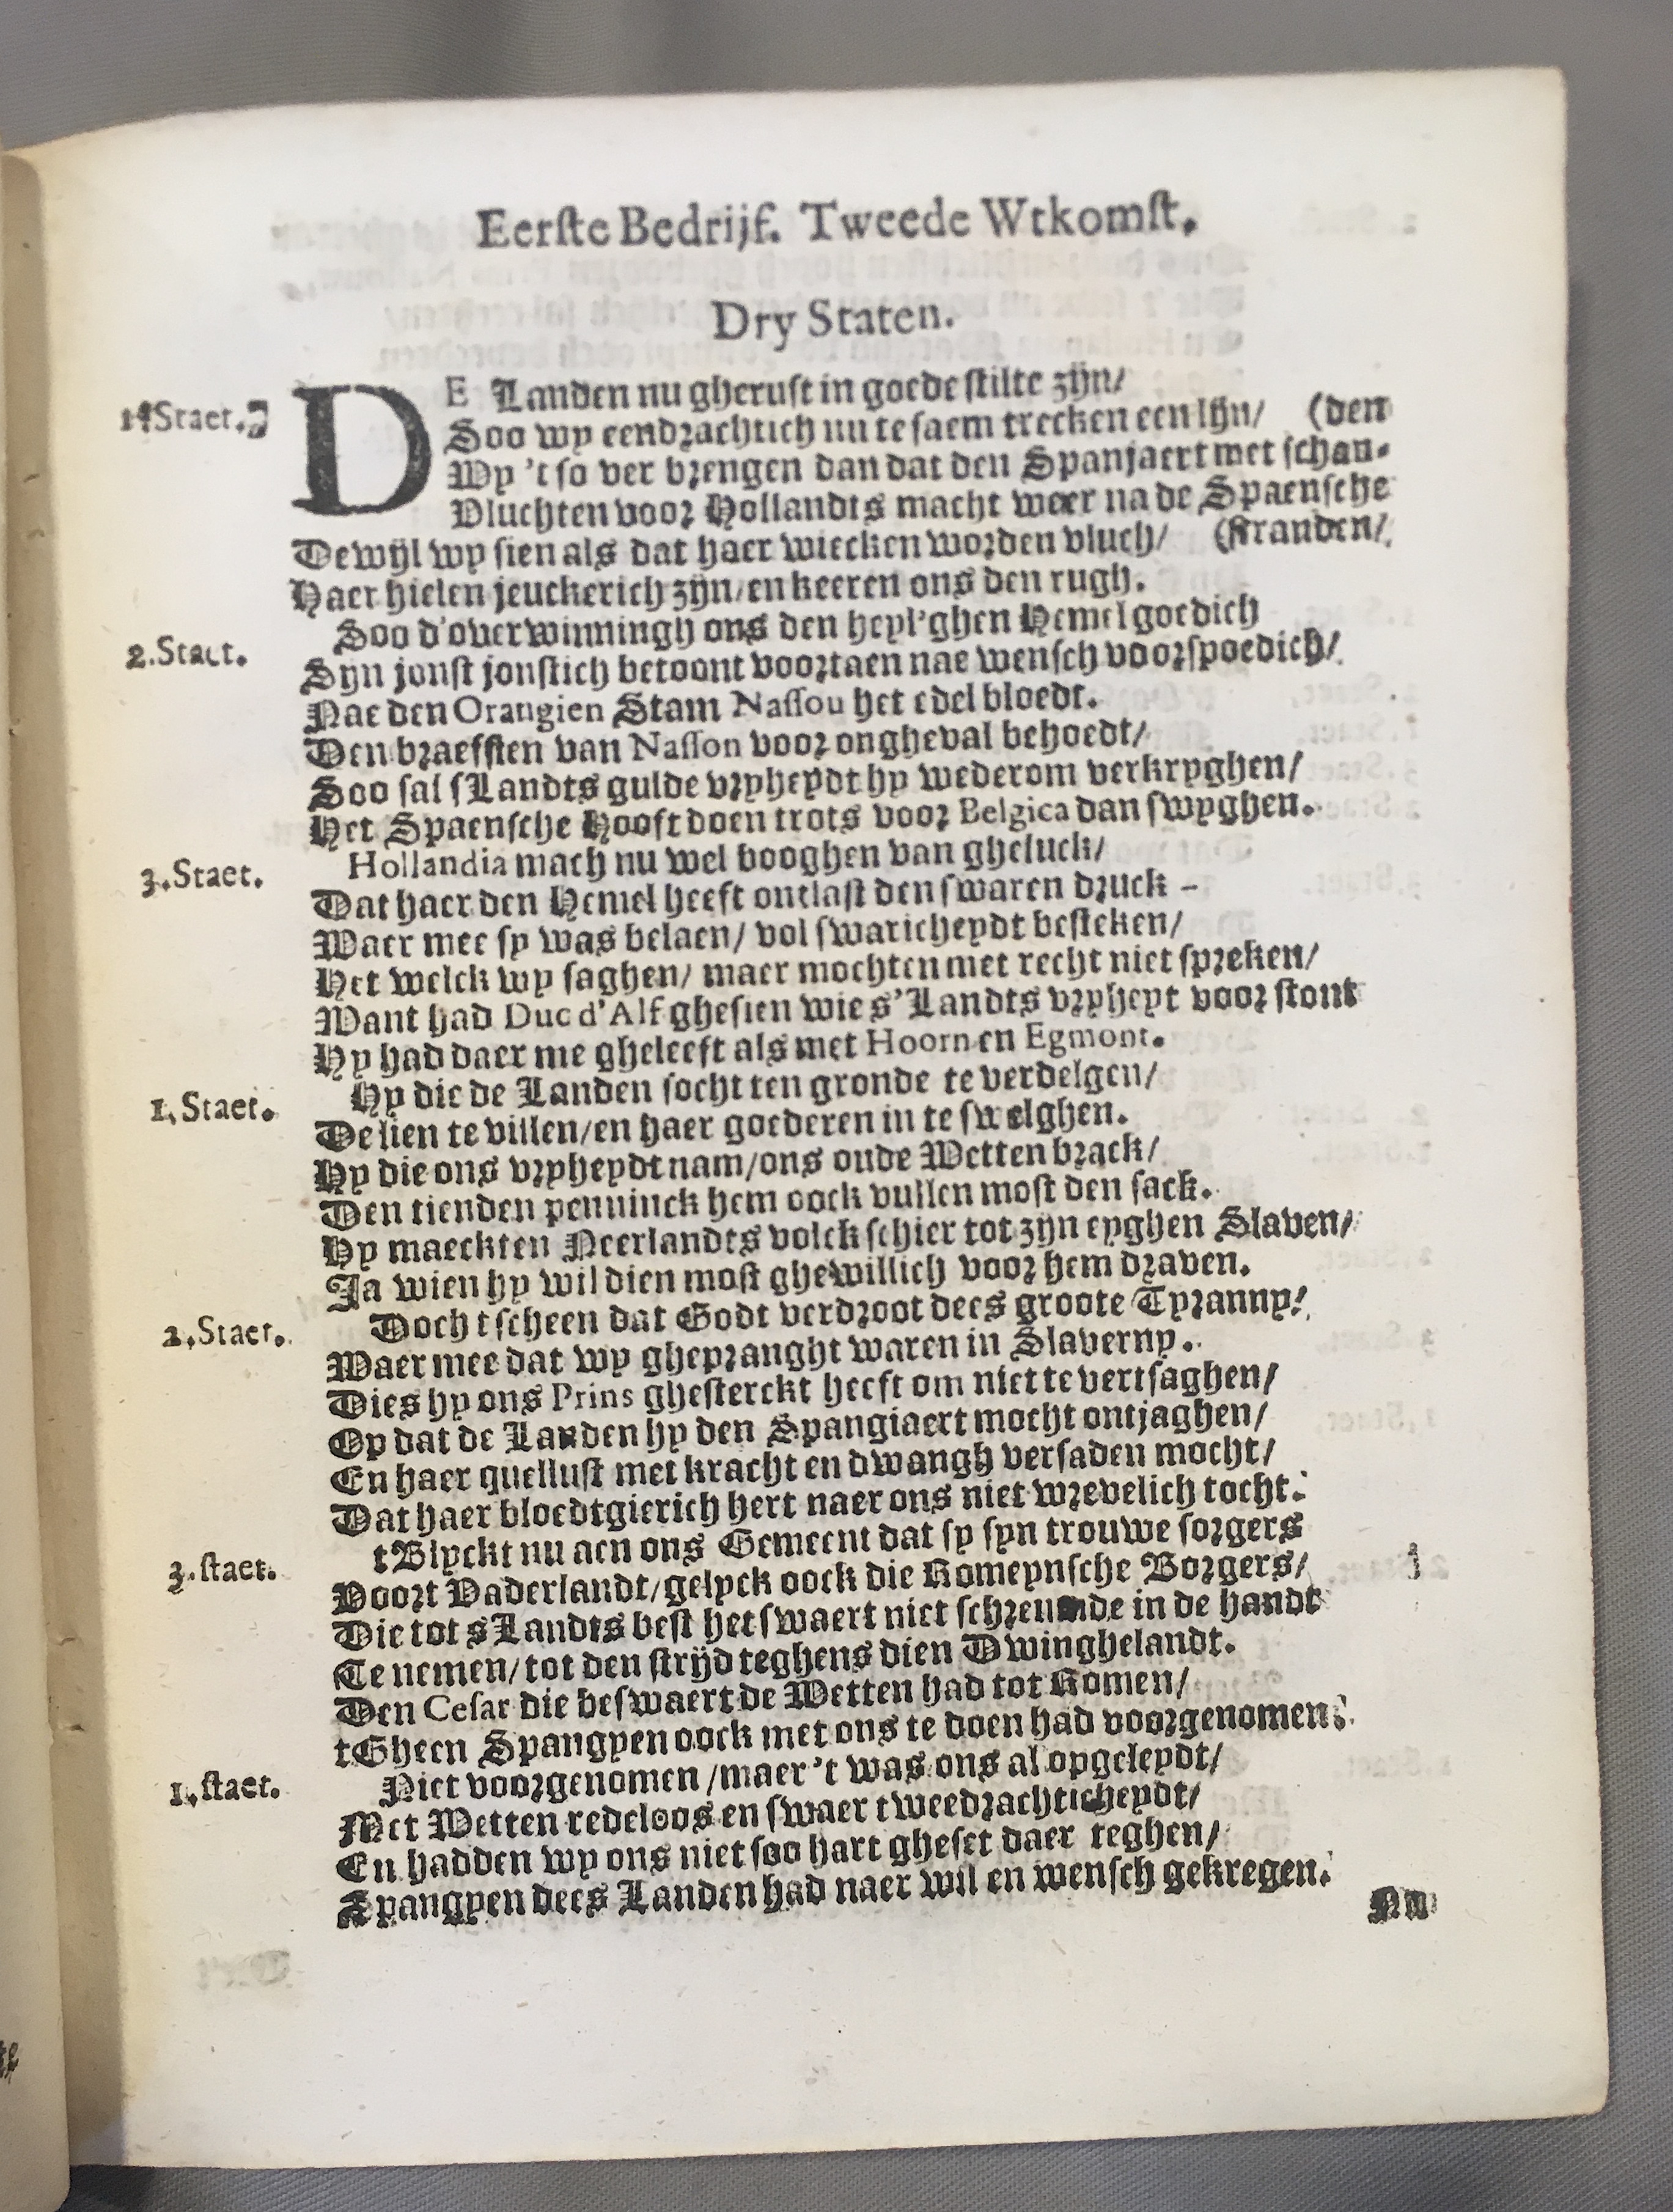 Eerste Bedrijf. Tweede Wtkomst.
Dry Staten.
1. Staet. DE Landen nu gherust in goede stilte zijn/
Soo wy eendrachtich nu te saem trecken een lijn/ (den
Wy 't so ver brengen dan dat den Spanjaert met schan-
Vluchten voor Hollandts macht weer na de Spaensche
Dewijl wy sien als dat haer wiecken worden vluch/ (stranden/
Haer hielen jeuckerich zijn/en keeren ons den rugh.
2. Staet. Soo d'overwinningh ons den heyl'ghen Hemel goedich
Syn jonst jonstich betoont voortaen nae wensch voorspoedich/
Nae den Orangien Stam Nassou het edel bloedt.
Den braefsten van Nasson voor ongheval behoedt/
Soo sal sLandts gulde vryheydt hy wederom verkryghen/
Het Spaensche Hooft doen trots voor Belgica dan swyghen.
3. Staet. Hollandia mach nu wel booghen van gheluck/
Dat haer den Hemel heeft ontlast den swaren druck -
Waer mee sy was belaen/ vol swaricheydt besteken/
Het welck wy saghen/ maer mochten met recht niet spreken/
Want had Duc d'Alf ghesien wie s'Landts vryheyt voor stont
Hy had daer me gheleeft als met Hoorn en Egmont.
1. Staet. Hy die de Landen socht ten gronde te verdelgen/
De lien te villen/en haer goederen in te swelghen.
Hy die ons vryheydt nam/ons oude Wetten brack/
Den tienden penninck hem oock vullen most den sack.
Hy maeckten Neerlandts volck schier tot zijn eyghen Slaven/
Ja wien hy wil dien most ghewillich voor hem draven.
2. Staet. Doch tscheen dat Godt verdroot dees groote Tyranny!
Waer mee dat wy ghepranght waren in Slaverny.
Dies hy ons Prins ghesterckt heeft om niet te vertsaghen/
Op dat de Landen hy den Spangiaert mocht ontjaghen/
En haer quellust met kracht en dwangh versaden mocht/
Dat haer bloedtgierich hert naer ons niet wrevelich tocht:
3. staet. tBlyckt nu aen ons Gemeent dat sy syn trouwe sorgers
Voort Vaderlandt/gelyck oock die Romeynsche Borgers/
Die tot sLandts best het swaert niet schreumde in de handt
Te nemen/tot den strijd teghens dien Dwinghelandt.
Den Cesar die beswaert de Wetten had tot Romen/
tGheen Spangyen oock met ons te doen had voorgenomen:
1. staet. Niet voorgenomen/maer 't was ons al opgeleydt/
Met Wetten redeloos en swaer tweedrachticheydt/
En hadden wy ons niet soo hart gheset daer teghen/
Spangyen dees Landen had naer wil en wensch gekregen.
Nu